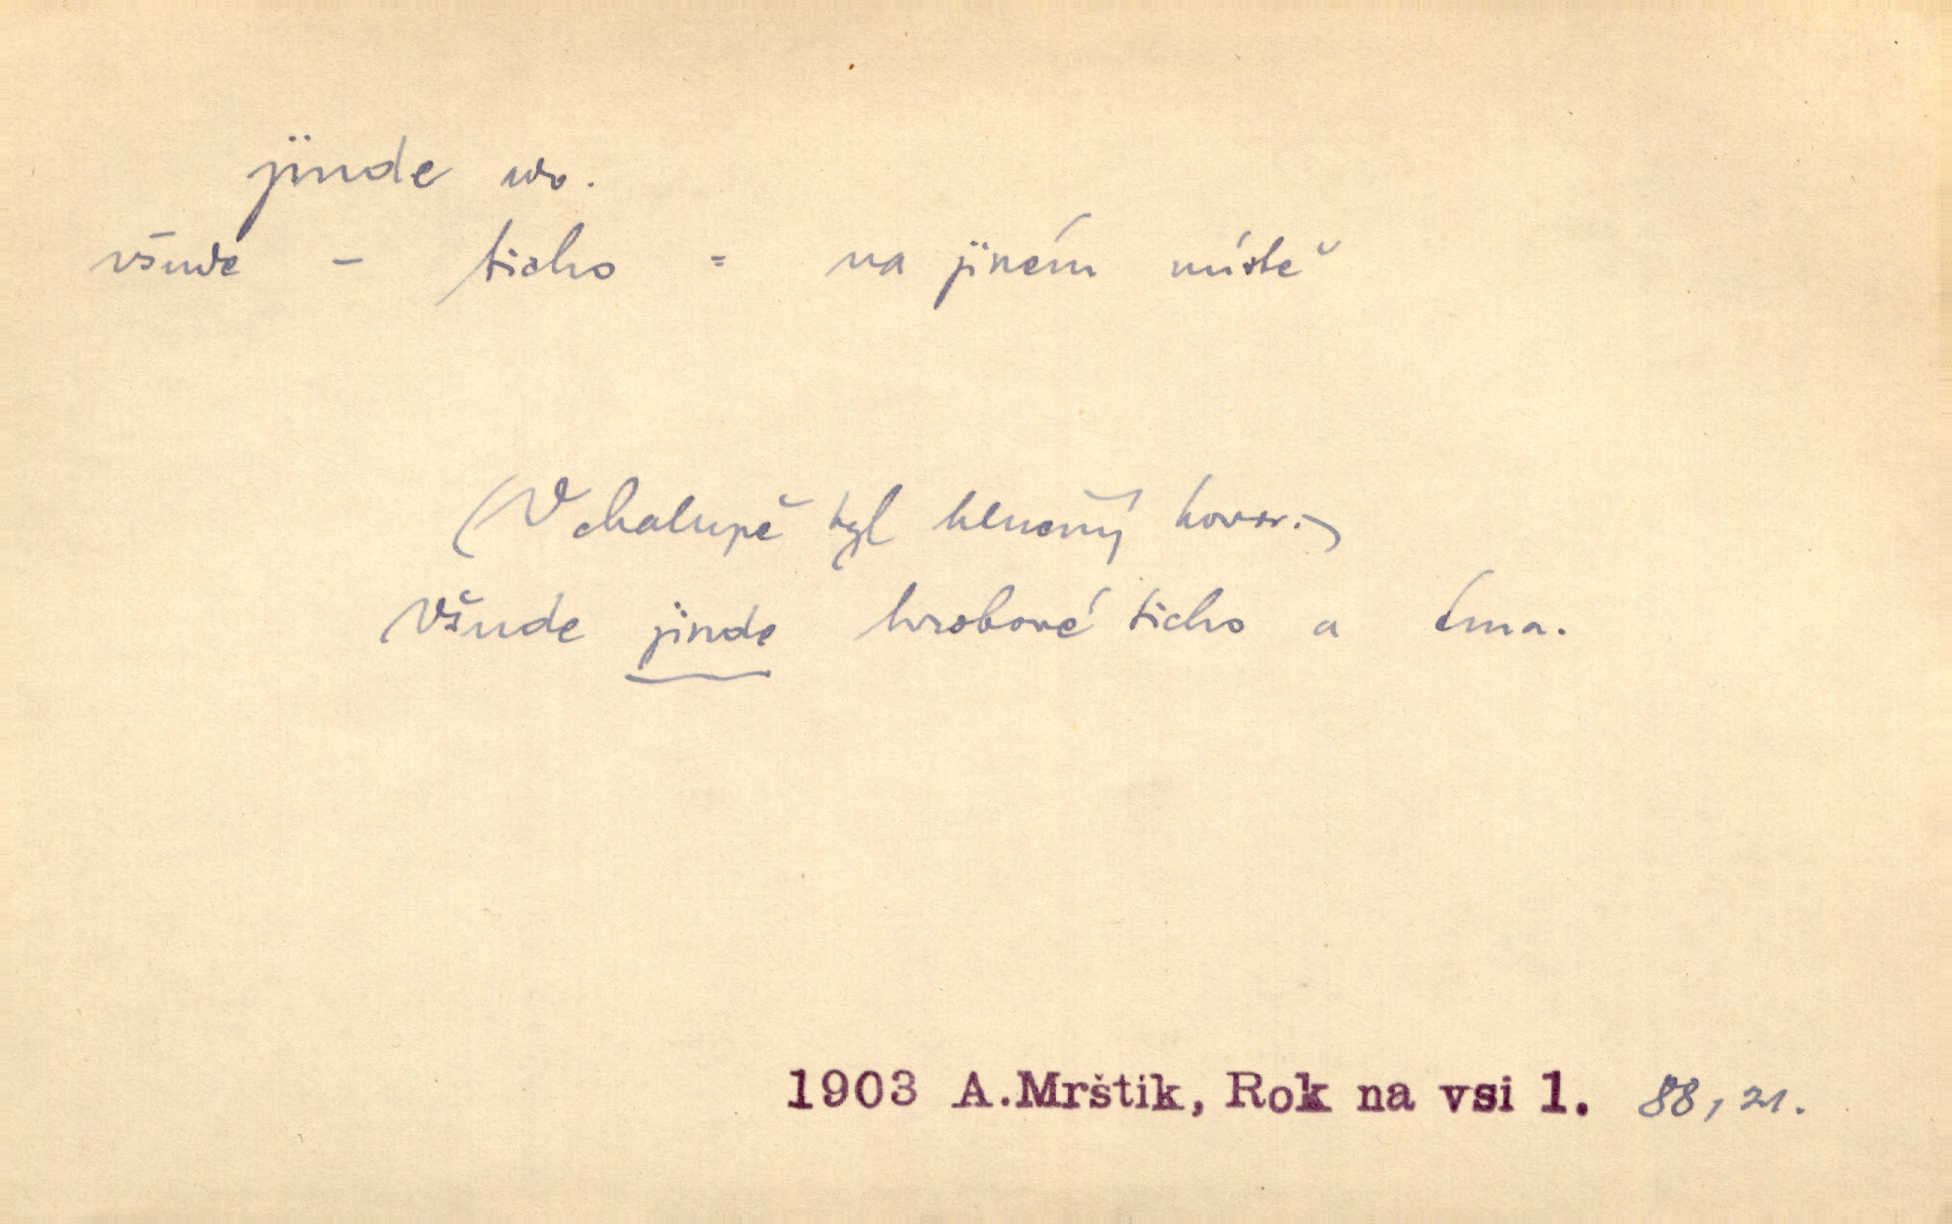 jinde adv.
všude – ticho = na jiném místě
(V chalupě byl hlučný hovor.)
Všude jinde hrobové ticho a tma.
1903 A.Mrštik, Rok na vsi 1. 88, 21.